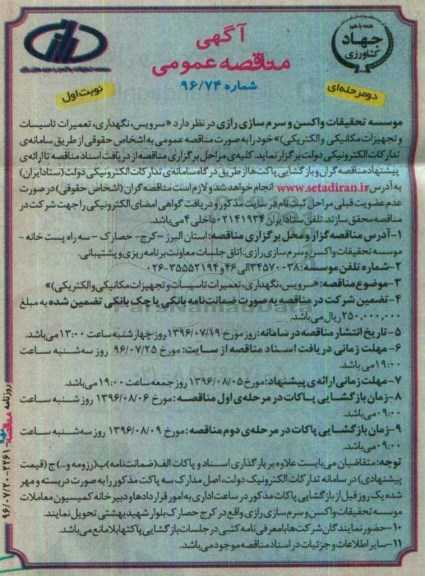 آگهی
مناقصه عمومی
شماره ۹۶/۷۴
جهاد
کشاورزی
دو مرحله‌ای
نوبت اول
موسسه تحقیقات واکسن و سرم سازی رازی در نظر دارد «سرویس، نگهداری، تعمیرات تاسیسات
و تجهیزات مکانیکی و الکتریکی)» خود را به صورت مناقصه عمومی به اشخاص حقوقی از طریق سامانه‌ی
تدارکات الکترونیکی دولت برگزار نماید. کلیه‌ی مراحل برگزاری مناقصه از دریافت اسناد مناقصه تا ارائه‌ی
پیشنهاد مناقصه گران و بازگشایی پاکت‌ها از طریق درگاه سامانه‌ی تدارکات الکترونیکی دولت (ستاد ایران)
به آدرس www.setadiran.ir انجام خواهد شد و لازم است مناقصه گران (اشخاص حقوقی) در صورت
عدم عضویت قبلی مراحل ثبت نام در سایت مذکور و دریافت گواهی امضای الکترونیکی را جهت شرکت در
مناقصه محقق سازند. تلفن ستاد ایران ۰۲۱۴۱۹۳۴ داخلی ۴ می‌باشد.
۱- آدرس مناقصه گزار و محل برگزاری مناقصه: استان البرز - کرج - حصارک - سه راه پست خانه -
موسسه تحقیقات واکسن و سرم سازی رازی. اتاق جلسات معاونت برنامه ریزی و پشتیبانی.
۲- شماره تلفن موسسه: ۳۴۵۷۰۰۳۸ الی ۴۶ و ۳۵۵۵۲۱۹۴-۰۲۶
۳- موضوع مناقصه: «سرویس، نگهداری، تعمیرات تاسیسات و تجهیزات مکانیکی و الکتریکی)»
۴- تضمین شرکت در مناقصه به صورت ضمانت‌نامه بانکی یا چک بانکی تضمین شده به مبلغ
۲۵۰,۰۰۰,۰۰۰ ریال می‌باشد.
۵- تاریخ انتشار مناقصه در سامانه: روز مورخ ۱۳۹۶/۰۷/۱۹ روز چهارشنبه ساعت ۱۳:۰۰ می‌باشد.
۶- مهلت زمانی دریافت اسناد مناقصه از سایت: مورخ ۹۶/۰۷/۲۵ روز سه‌شنبه ساعت
۱۹:۰۰ می‌باشد.
۷- مهلت زمانی ارائه‌ی پیشنهاد: مورخ ۱۳۹۶/۰۸/۰۵ روز جمعه ساعت ۱۹:۰۰ می‌باشد.
۸- زمان بازگشایی پاکات در مرحله‌ی اول مناقصه: مورخ ۱۳۹۶/۰۸/۰۶ روز شنبه ساعت
۰۹:۰۰ می‌باشد.
۹- زمان بازگشایی پاکات در مرحله‌ی دوم مناقصه: مورخ ۱۳۹۶/۰۸/۰۹ روز سه‌شنبه ساعت
۰۹:۰۰ می‌باشد.
توجه: متقاضیان می‌بایست علاوه بر بارگذاری اسناد و پاکات الف (ضمانت‌نامه) ب (رزومه و...) ج (قیمت
پیشنهادی) در سامانه تدارکات الکترونیک دولت، اصل مدارک سه پاکت مذکور را به صورت دربسته و مهر
شده یک روز قبل از بازگشایی پاکات مذکور در ساعت اداری به امور قراردادها و دبیرخانه کمیسیون معاملات
موسسه تحقیقات واکسن و سرم سازی رازی واقع در کرج حصارک بلوار شهید بهشتی تحویل نمایند.
۱۰- حضور نمایندگان شرکت‌ها با معرفی‌نامه کتبی در جلسات بازگشایی پاکت‌ها بلامانع می‌باشد.
۱۱- سایر اطلاعات و جزئیات در اسناد مناقصه موجود می‌باشد.
روزنامه مناقصه ۲۲۶۱-۹۶/۰۷/۲۰